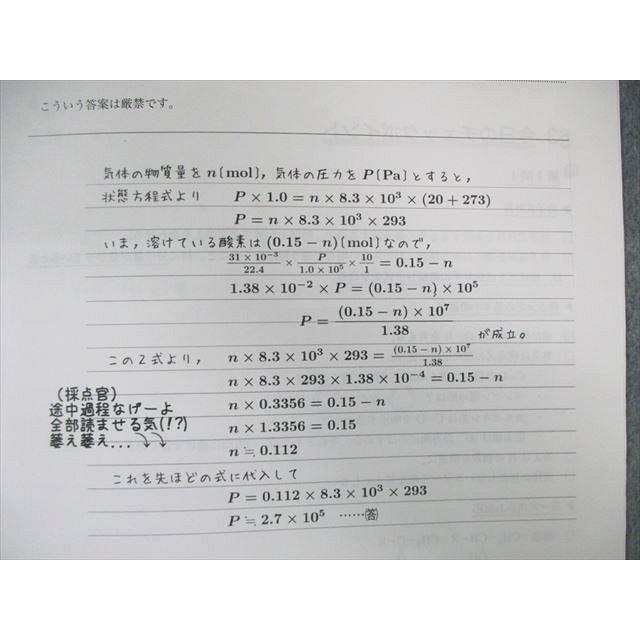 こういう答案は厳禁です。
気体の物質量をn〔mol〕，気体の圧力をP〔Pa〕とすると，
状態方程式より P × 1.0 = n × 8.3 × 10³ × (20 + 273)
P = n × 8.3 × 10³ × 293
いま，溶けている酸素は(0.15 − n)〔mol〕なので，
31 × 10⁻³/22.4 × P/1.0 × 10⁵ × 10/1 = 0.15 − n
1.38 × 10⁻² × P = (0.15 − n) × 10⁵
P = (0.15 − n) × 10⁷/1.38 が成立。
この2式より， n × 8.3 × 10³ × 293 = (0.15 − n) × 10⁷/1.38
n × 8.3 × 293 × 1.38 × 10⁻⁴ = 0.15 − n
n × 0.3356 = 0.15 − n
n × 1.3356 = 0.15
n ≒ 0.112
（採点官）
途中過程なげーよ
全部読ませる気(!?)
萎え萎え...⤵⤵
これを先ほどの式に代入して
P = 0.112 × 8.3 × 10³ × 293
P ≒ 2.7 × 10⁵ ……㊎